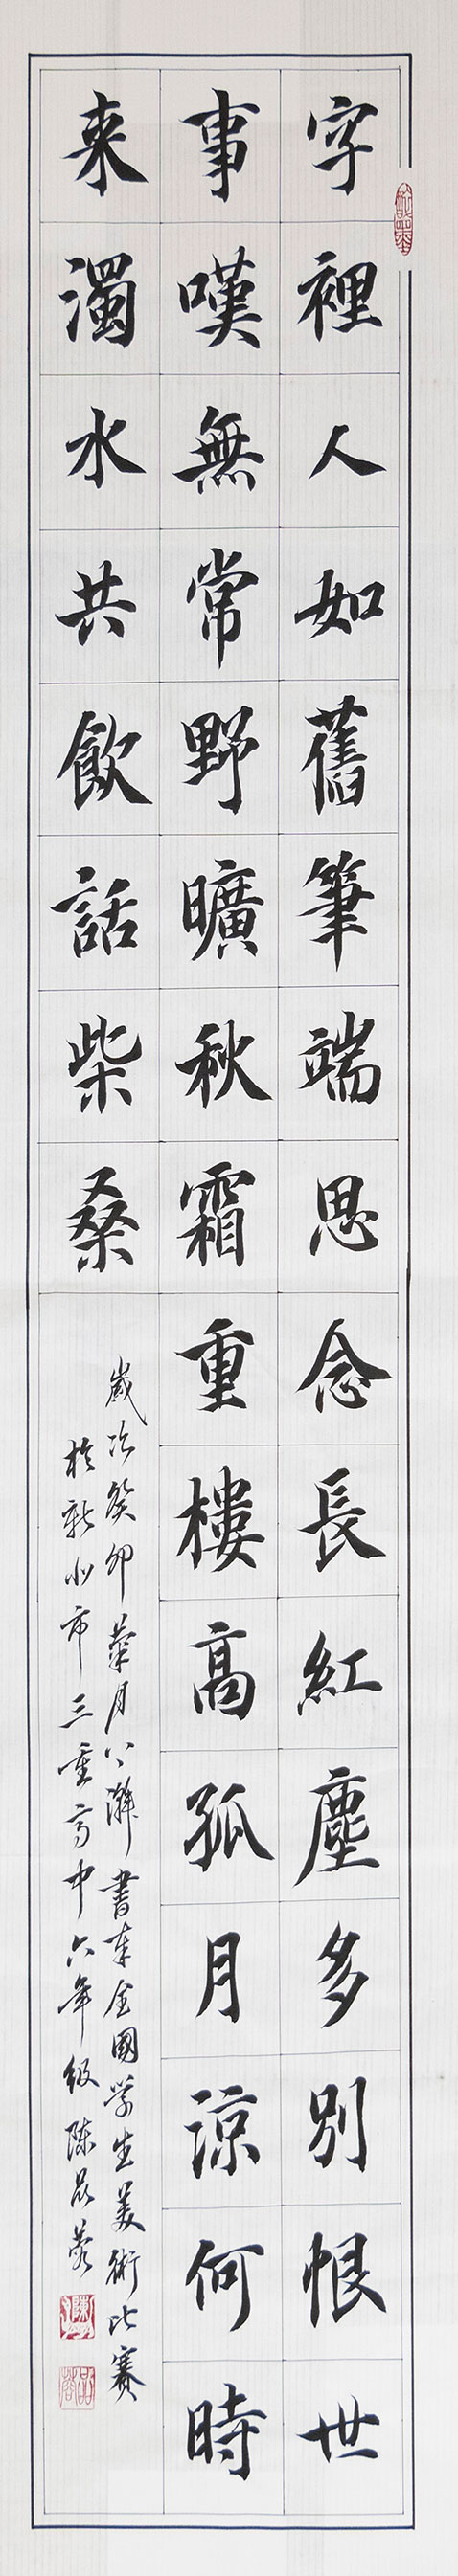 字裡人如舊筆端思念長紅塵多別恨世
事嘆無常野曠秋霜重樓高孤月涼何時
来濁水共飲話柴桑
歲次癸卯菊月八瀞書奉全國學生美術比賽
於新北市三重高中六年級陳品蓉